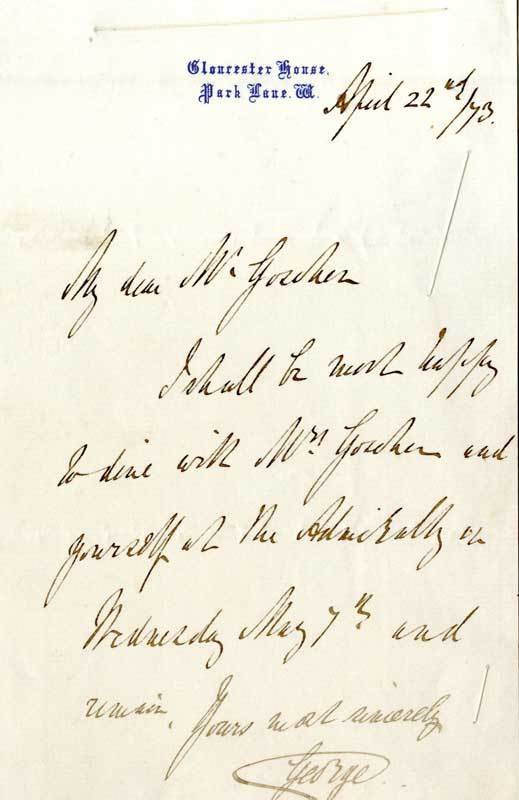 Gloucester House.
Park Lane. W.
April 22nd/73.
My dear Mr Goschen
I shall be most happy
to dine with Mrs Goschen and
yourself at the Admiralty on
Wednesday May 7th and
remain, Yours most sincerely
George